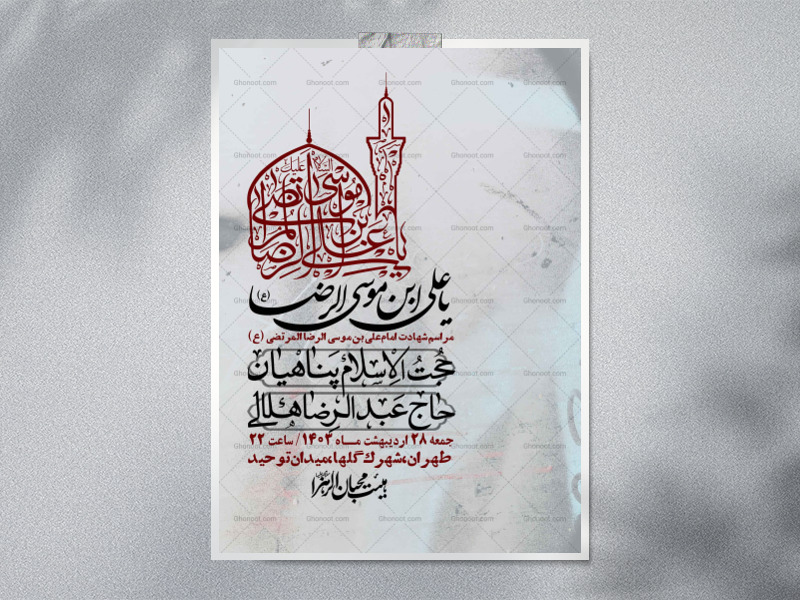 السلام علیک
یا علی بن موسی الرضا المرتضی
یا علی ابن موسی الرضا (ع)
مراسم شهادت امام علی بن موسی الرضا المرتضی (ع)
حجت الاسلام پناهیان
حاج عبدالرضا هلالی
جمعه ۲۸ اردیبهشت مــاه ۱۴۰۳ / ساعت ۲۲
طهران،شهرک گلها،میدان توحید
هیئت محبان الزهرا
Ghonoot.com